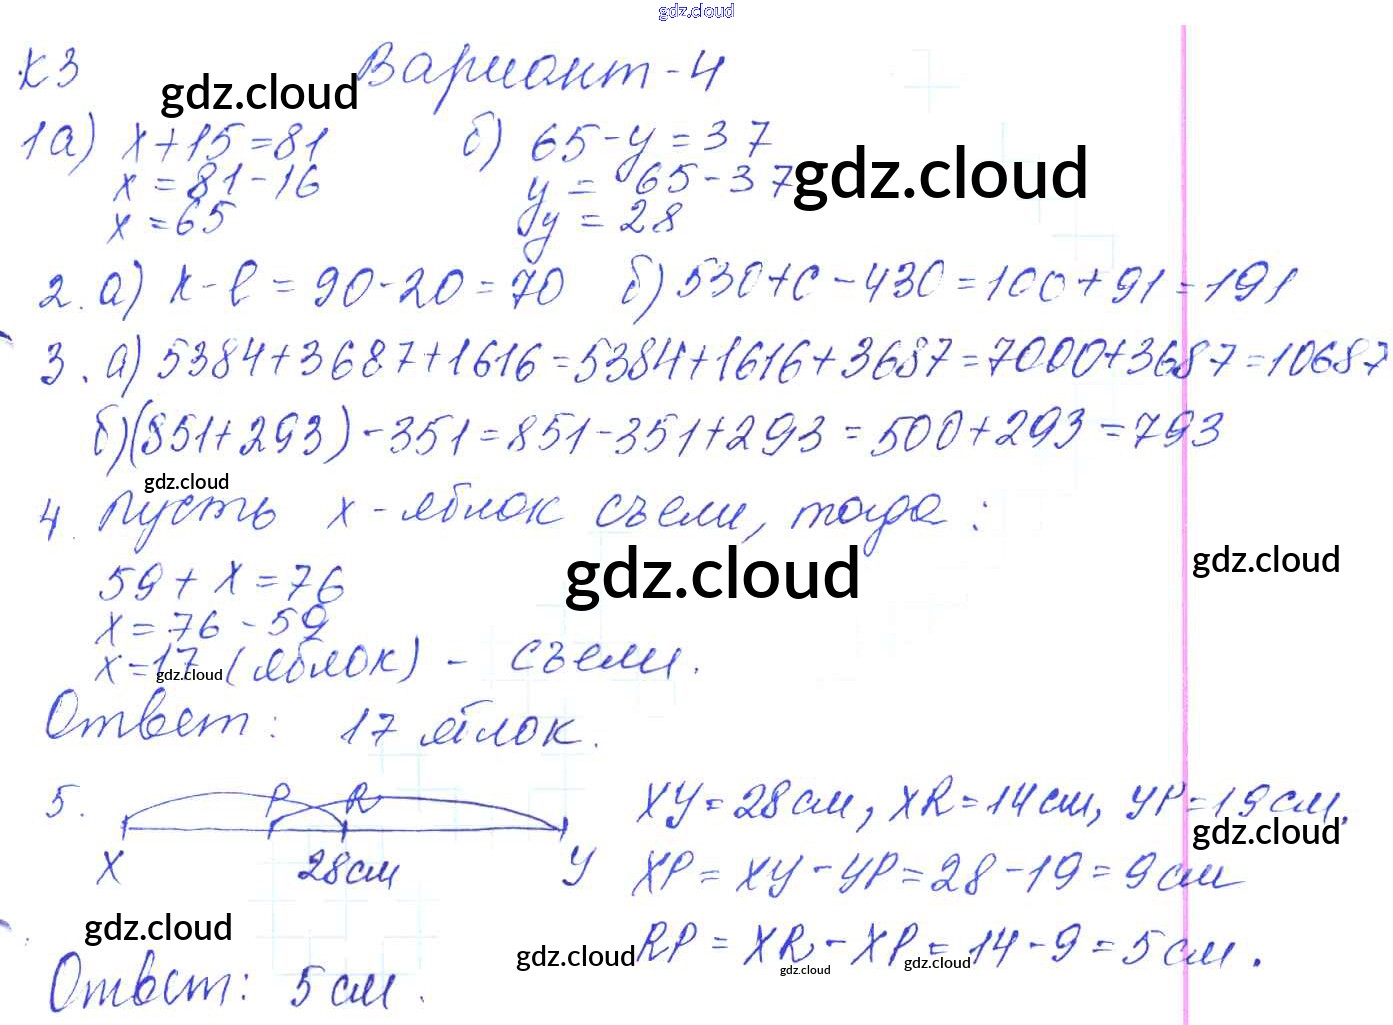 gdz.cloud
К3 Вариант-4
gdz.cloud
1а) x+15=81 б) 65-y=37
gdz.cloud
x=81-16 y=65-37
x=65 y=28
2. а) k-l=90-20=70 б) 530+c-430=100+91=191
3. а) 5384+3687+1616=5384+1616+3687=7000+3687=10687
б) (851+293)-351=851-351+293=500+293=793
gdz.cloud
4. Пусть x-яблок съели, тогда:
gdz.cloud
gdz.cloud
59+x=76
x=76-59
x=17 (яблок) - съели.
gdz.cloud
Ответ: 17 яблок.
5. P R XY=28см, XR=14см, YP=19см,
gdz.cloud
X 28см Y XP=XY-YP=28-19=9см
gdz.cloud
gdz.cloud
RP=XR-XP=14-9=5см.
gdz.cloud
gdz.cloud
Ответ: 5см.